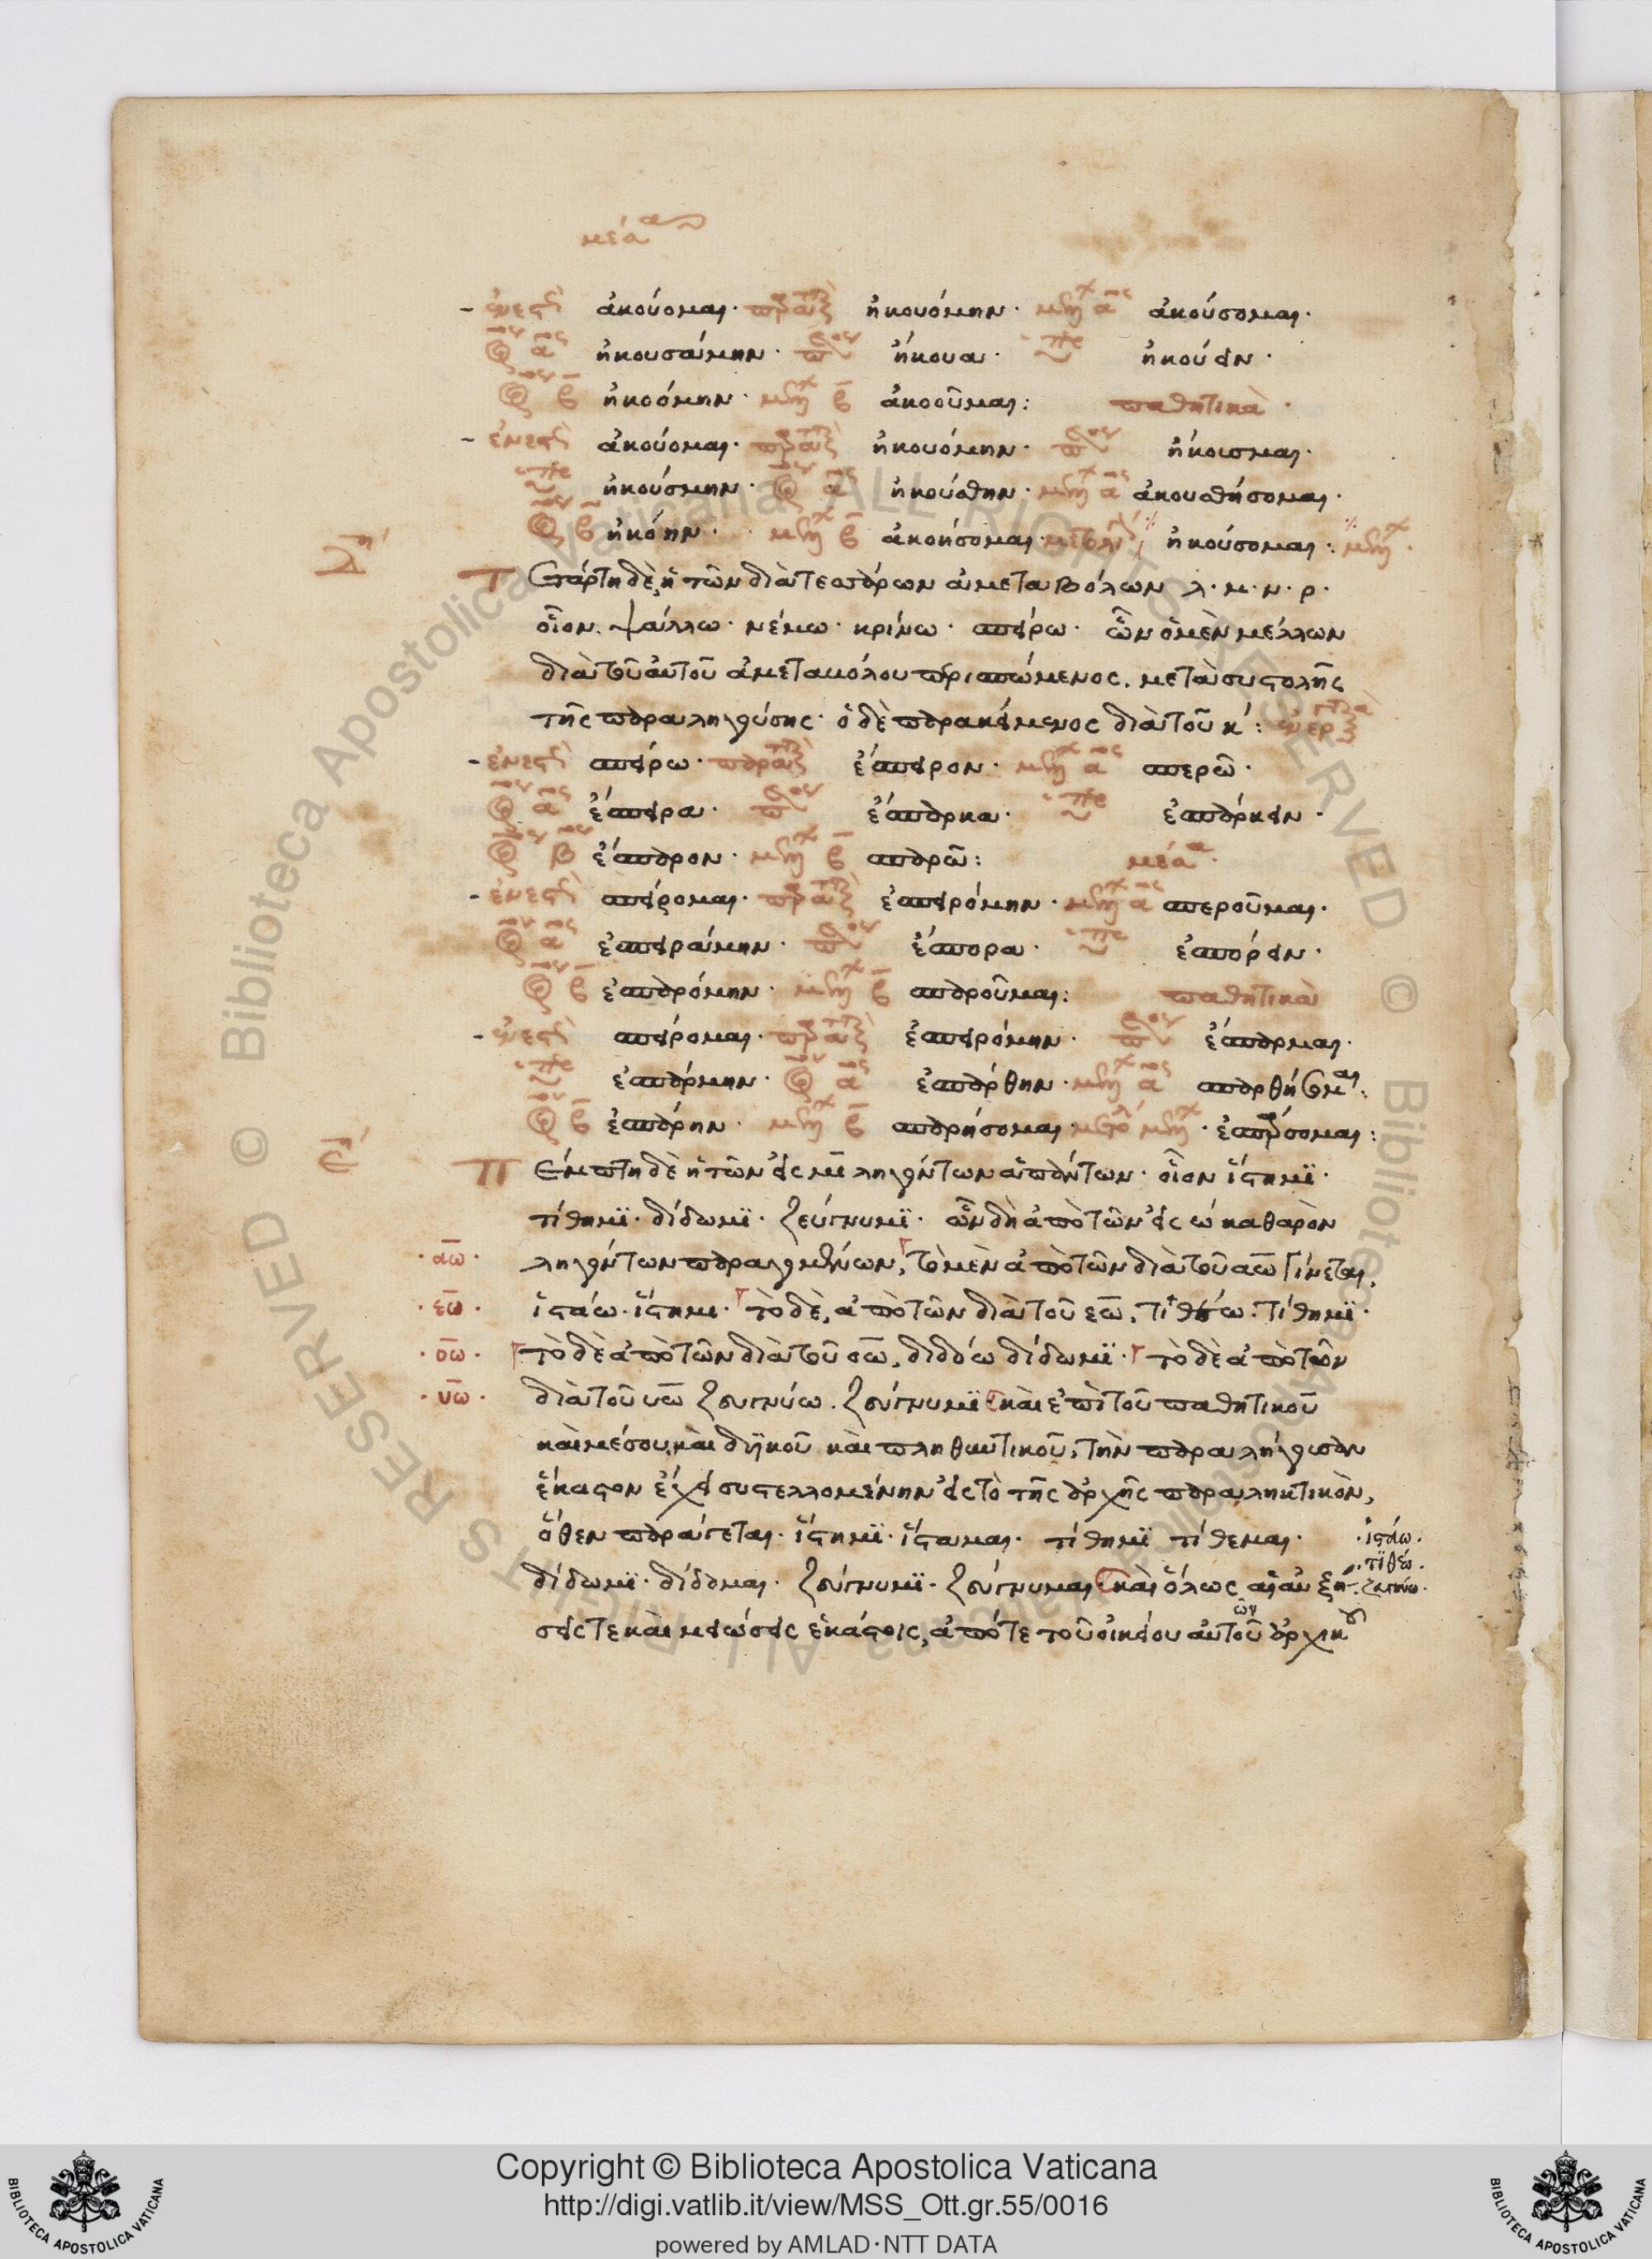 μέσα
ἐνεστ ἀκούομαι· παρατ ἠκουόμην· μελλ α ἀκούσομαι·
ἀορ α ἠκουσάμην· παρακ ἤκουα· ὑπερ ἠκούειν·
ἀορ β ἠκοόμην· μελλ β ἀκοοῦμαι: παθητικὰ·
ἐνεστ ἀκούομαι· παρατ ἠκουόμην· παρακ ἤκουσμαι·
ὑπερ ἠκούσμην· ἀορ α ἠκούσθην· μελλ α ἀκουσθήσομαι·
ἀορ β ἠκόην· μελλ β ἀκοήσομαι· ἠκούσομαι: μελλ·
Τετάρτη δὲ, ἡ τῶν διὰ τεσσάρων ἀμεταβόλων λ· μ· ν· ρ·
οἷον· ψάλλω· νέμω· κρίνω· σπείρω· ὧν ὁ μὲν μέλλων
διὰ τοῦ αὐτοῦ ἀμεταβόλου περισπώμενος. μετὰ συστολῆς
τῆς παραληγούσης· ὁ δὲ παρακείμενος διὰ τοῦ κ: ἐνεργ
ἐνεστ σπείρω· παρατ ἔσπειρον· μελλ α σπερῶ·
ἀορ α ἔσπειρα· παρακ ἔσπαρκα· ὑπερ ἐσπάρκειν·
ἀορ β ἔσπαρον· μελλ β σπαρῶ: μέσα·
ἐνεστ σπείρομαι· παρατ ἐσπειρόμην· μελλ α σπεροῦμαι·
ἀορ α ἐσπειράμην· παρακ ἔσπορα· ὑπερ ἐσπόρειν·
ἀορ β ἐσπαρόμην· μελλ β σπαροῦμαι: παθητικὰ
ἐνεστ σπείρομαι· παρατ ἐσπειρόμην· παρακ ἔσπαρμαι·
ὑπερ ἐσπάρμην· ἀορ α ἐσπάρθην· μελλ α σπαρθήσομαι:
ἀορ β ἐσπάρην· μελλ β σπαρήσομαι· μετ ὀλ μελλ· ἐσπάρσομαι:
ε
Πέμπτη δὲ ἡ τῶν εἰς μι ληγόντων ἁπάντων· οἷον ἵστημι·
τίθημι· δίδωμι· ζεύγνυμι· ὧν δὴ ἀπὸ τῶν εἰς ω καθαρὸν
·αω· ληγόντων παραγομένων, τὸ μὲν ἀπὸ τῶν διὰ τοῦ αω γίνεται,
·εω· ἱστάω· ἵστημι· τὸ δὲ, ἀπὸ τῶν διὰ τοῦ εω, τιθέω· τίθημι·
·οω· τὸ δὲ ἀπὸ τῶν διὰ τοῦ οω, διδόω δίδωμι· τὸ δὲ ἀπὸ τῶν
·υω· διὰ τοῦ υω ζευγνύω. ζεύγνυμι καὶ ἐπὶ τοῦ παθητικοῦ
καὶ μέσου, καὶ δυϊκοῦ καὶ πληθυντικοῦ, τὴν παραλήγουσαν
ἕκαστον ἔχει συστελλομένην εἰς τὸ τῆς ἀρχῆς παραληκτικὸν,
ὅθεν παράγεται· ἵστημι· ἵσταμαι· τίθημι τίθεμαι· ·ἱστάω·
·τιθέω·
δίδωμι· δίδομαι· ζεύγνυμι· ζεύγνυμαι καὶ ὅλως αἱ αὐξή-
·ζευγνύω·
σεις τε καὶ μειώσεις ἑκάστοις, ἀπό τε τοῦ οἰκείου αὐτοῦ ἀρχικοῦ